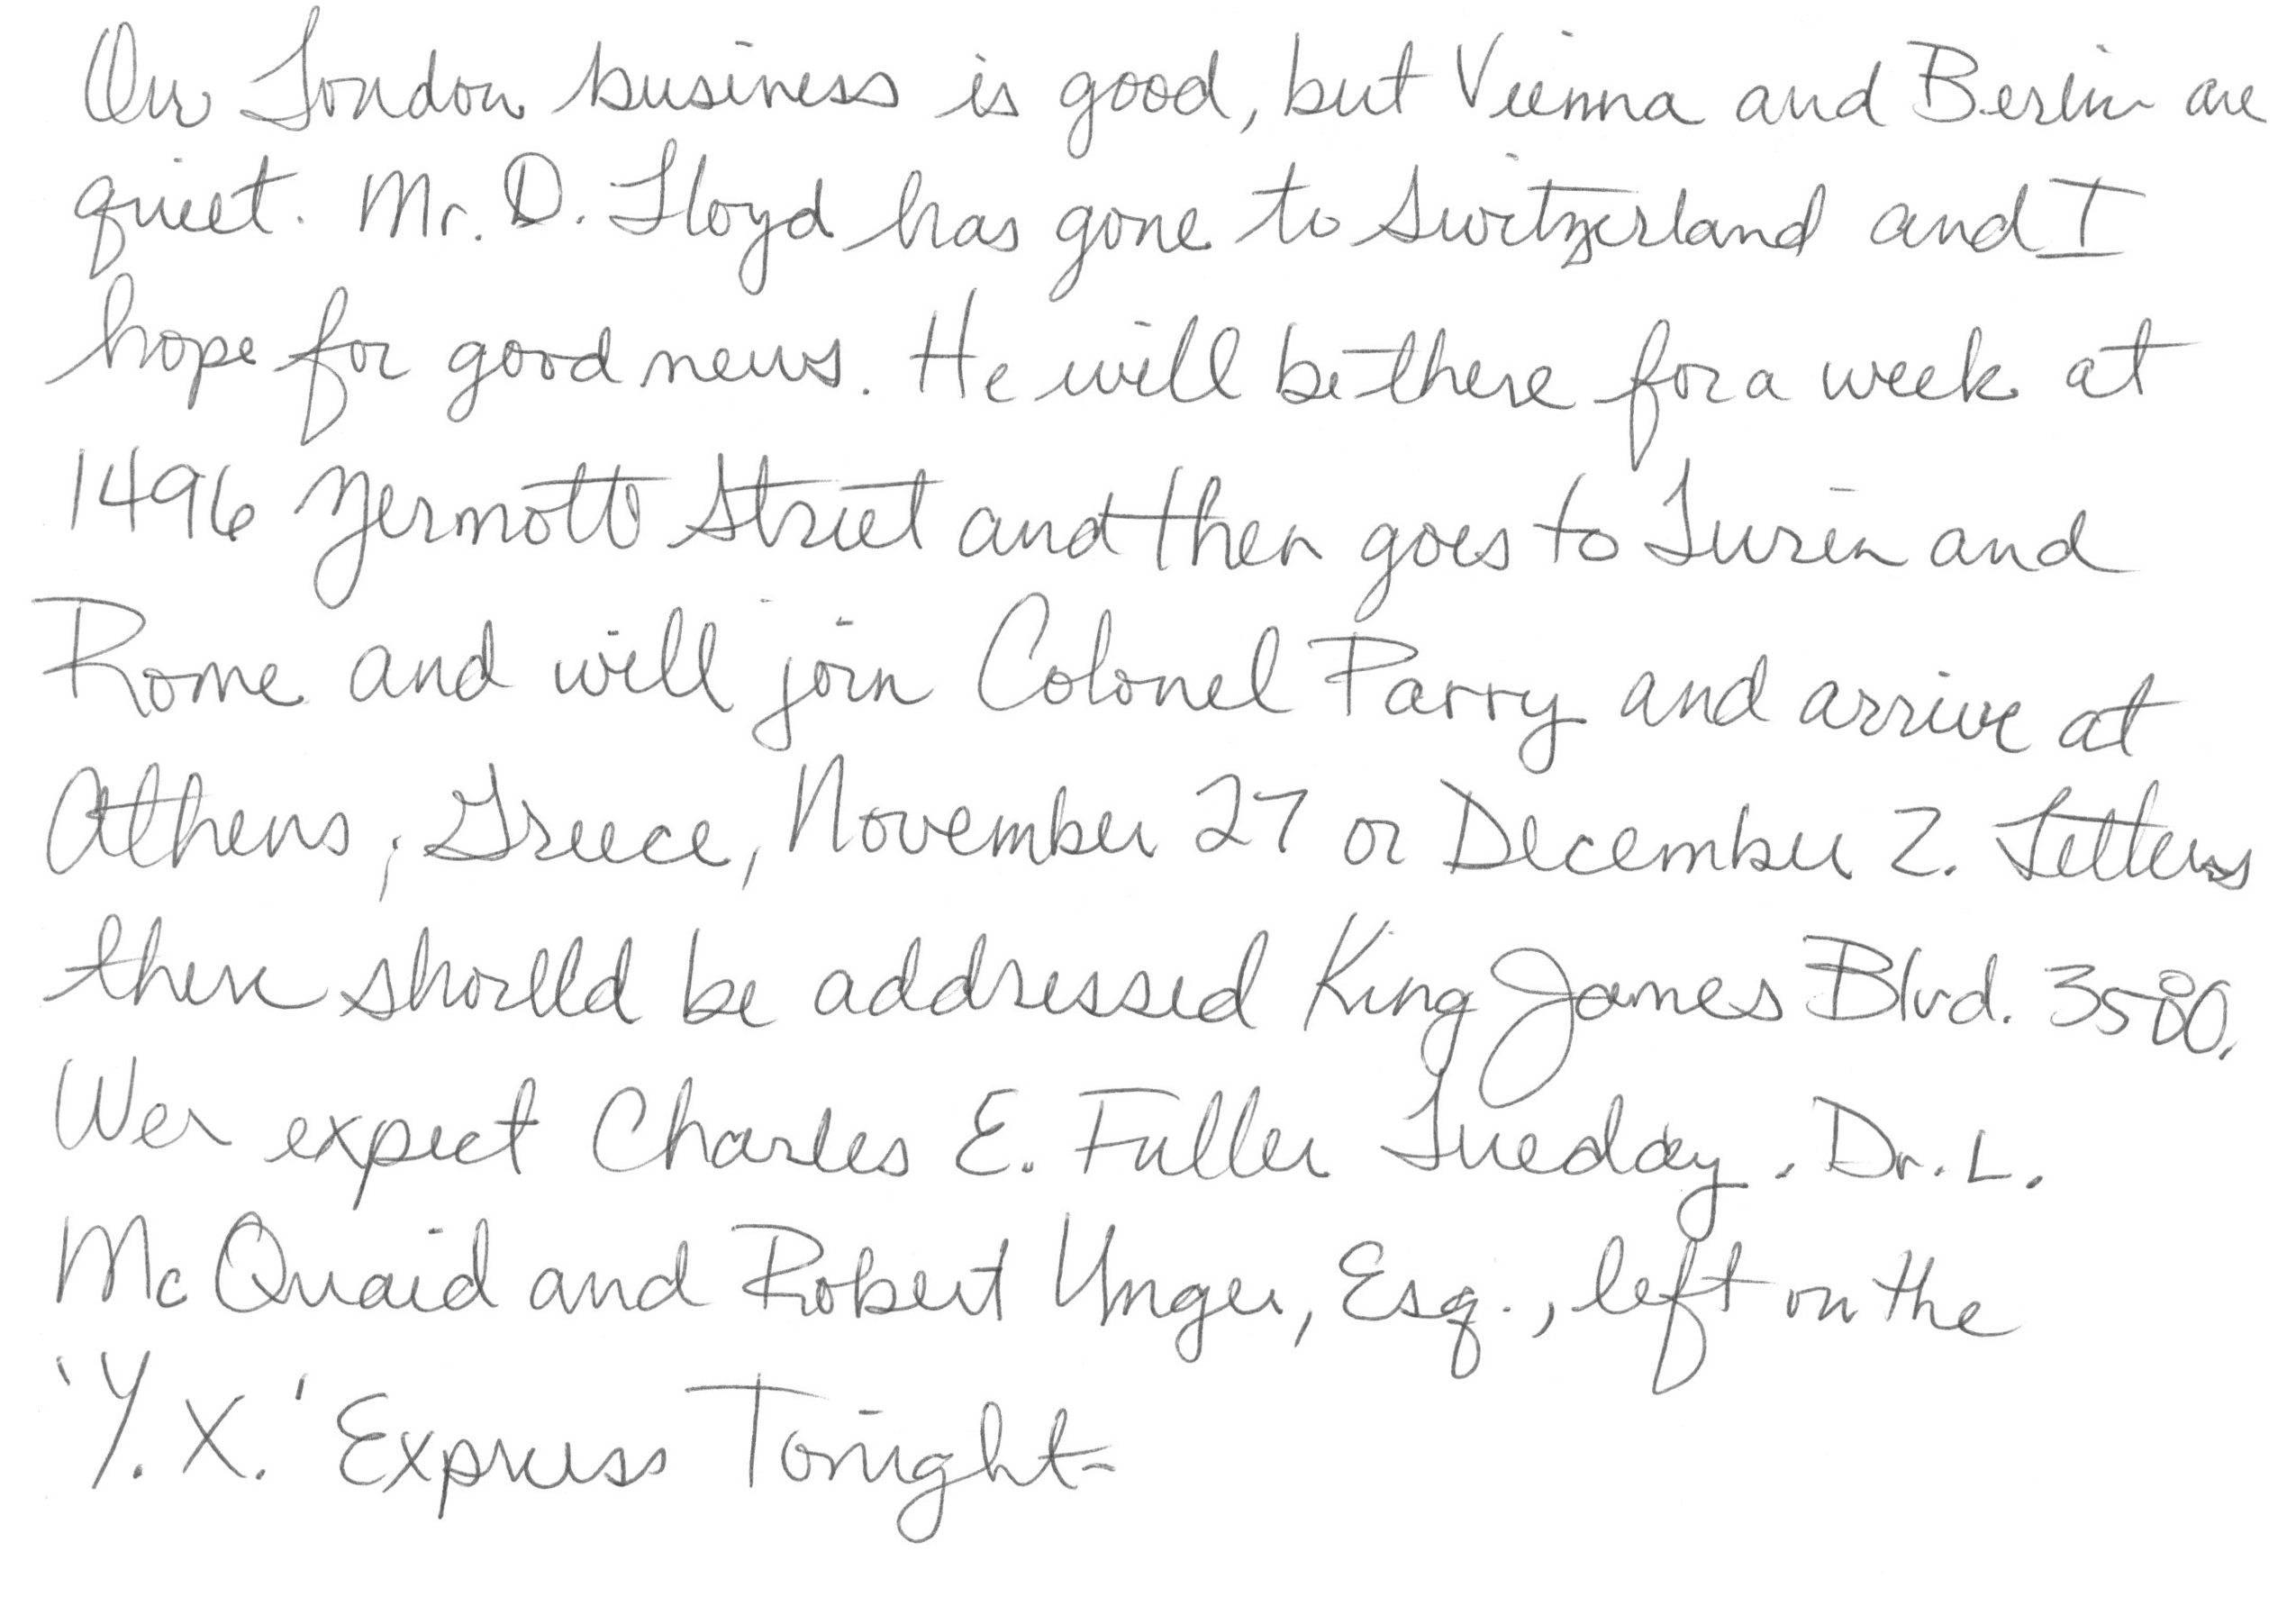 Our London business is good, but Vienna and Berlin are
quiet. Mr. D. Lloyd has gone to Switzerland and I
hope for good news. He will be there for a week at
1496 Zermott Street and then goes to Turin and
Rome and will join Colonel Parry and arrive at
Athens, Greece, November 27 or December 2. Letters
there should be addressed King James Blvd. 3580.
Wer expect Charles E. Fuller Tuedday. Dr. L.
McQuaid and Robert Unger, Esq., left on the
'Y. X.' Express Tonight-